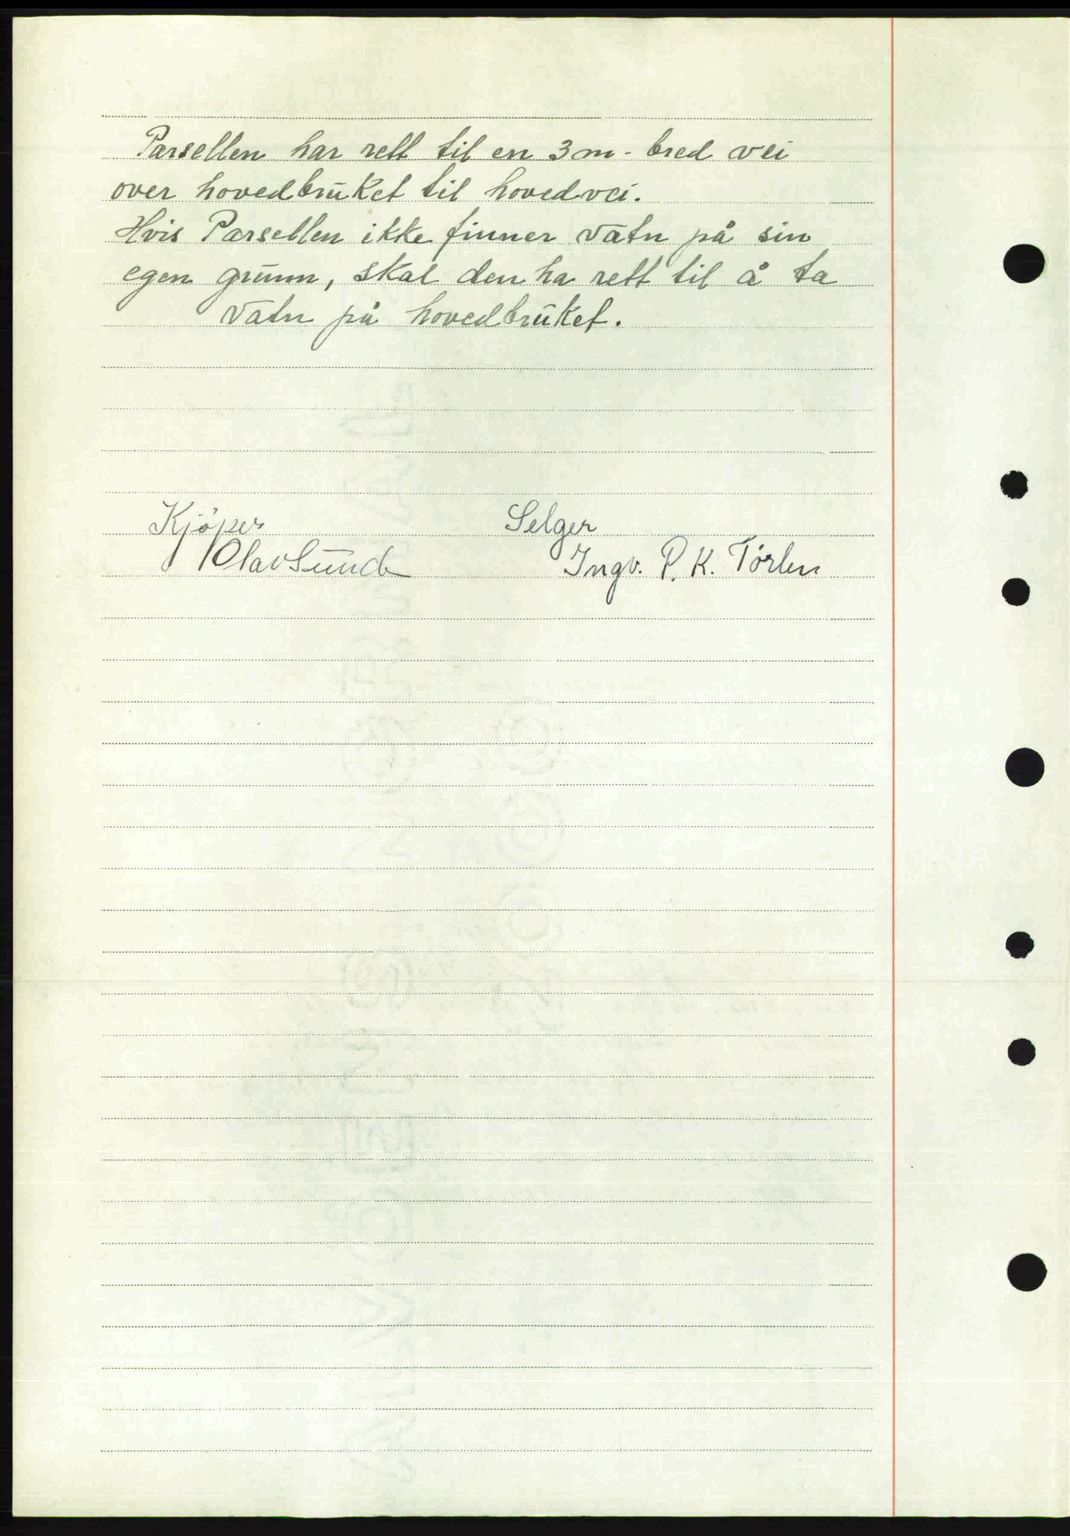 Parsellen har rett til en 3 m- bred vei
over hovedbruket til hovedvei.
Hvis Parsellen ikke finner vatn på sin
egen grunn, skal den ha rett til å ta
vatn på hovedbruket.
Kjöper Selger
Olav Sunde Ingv. P. K. Tørlen